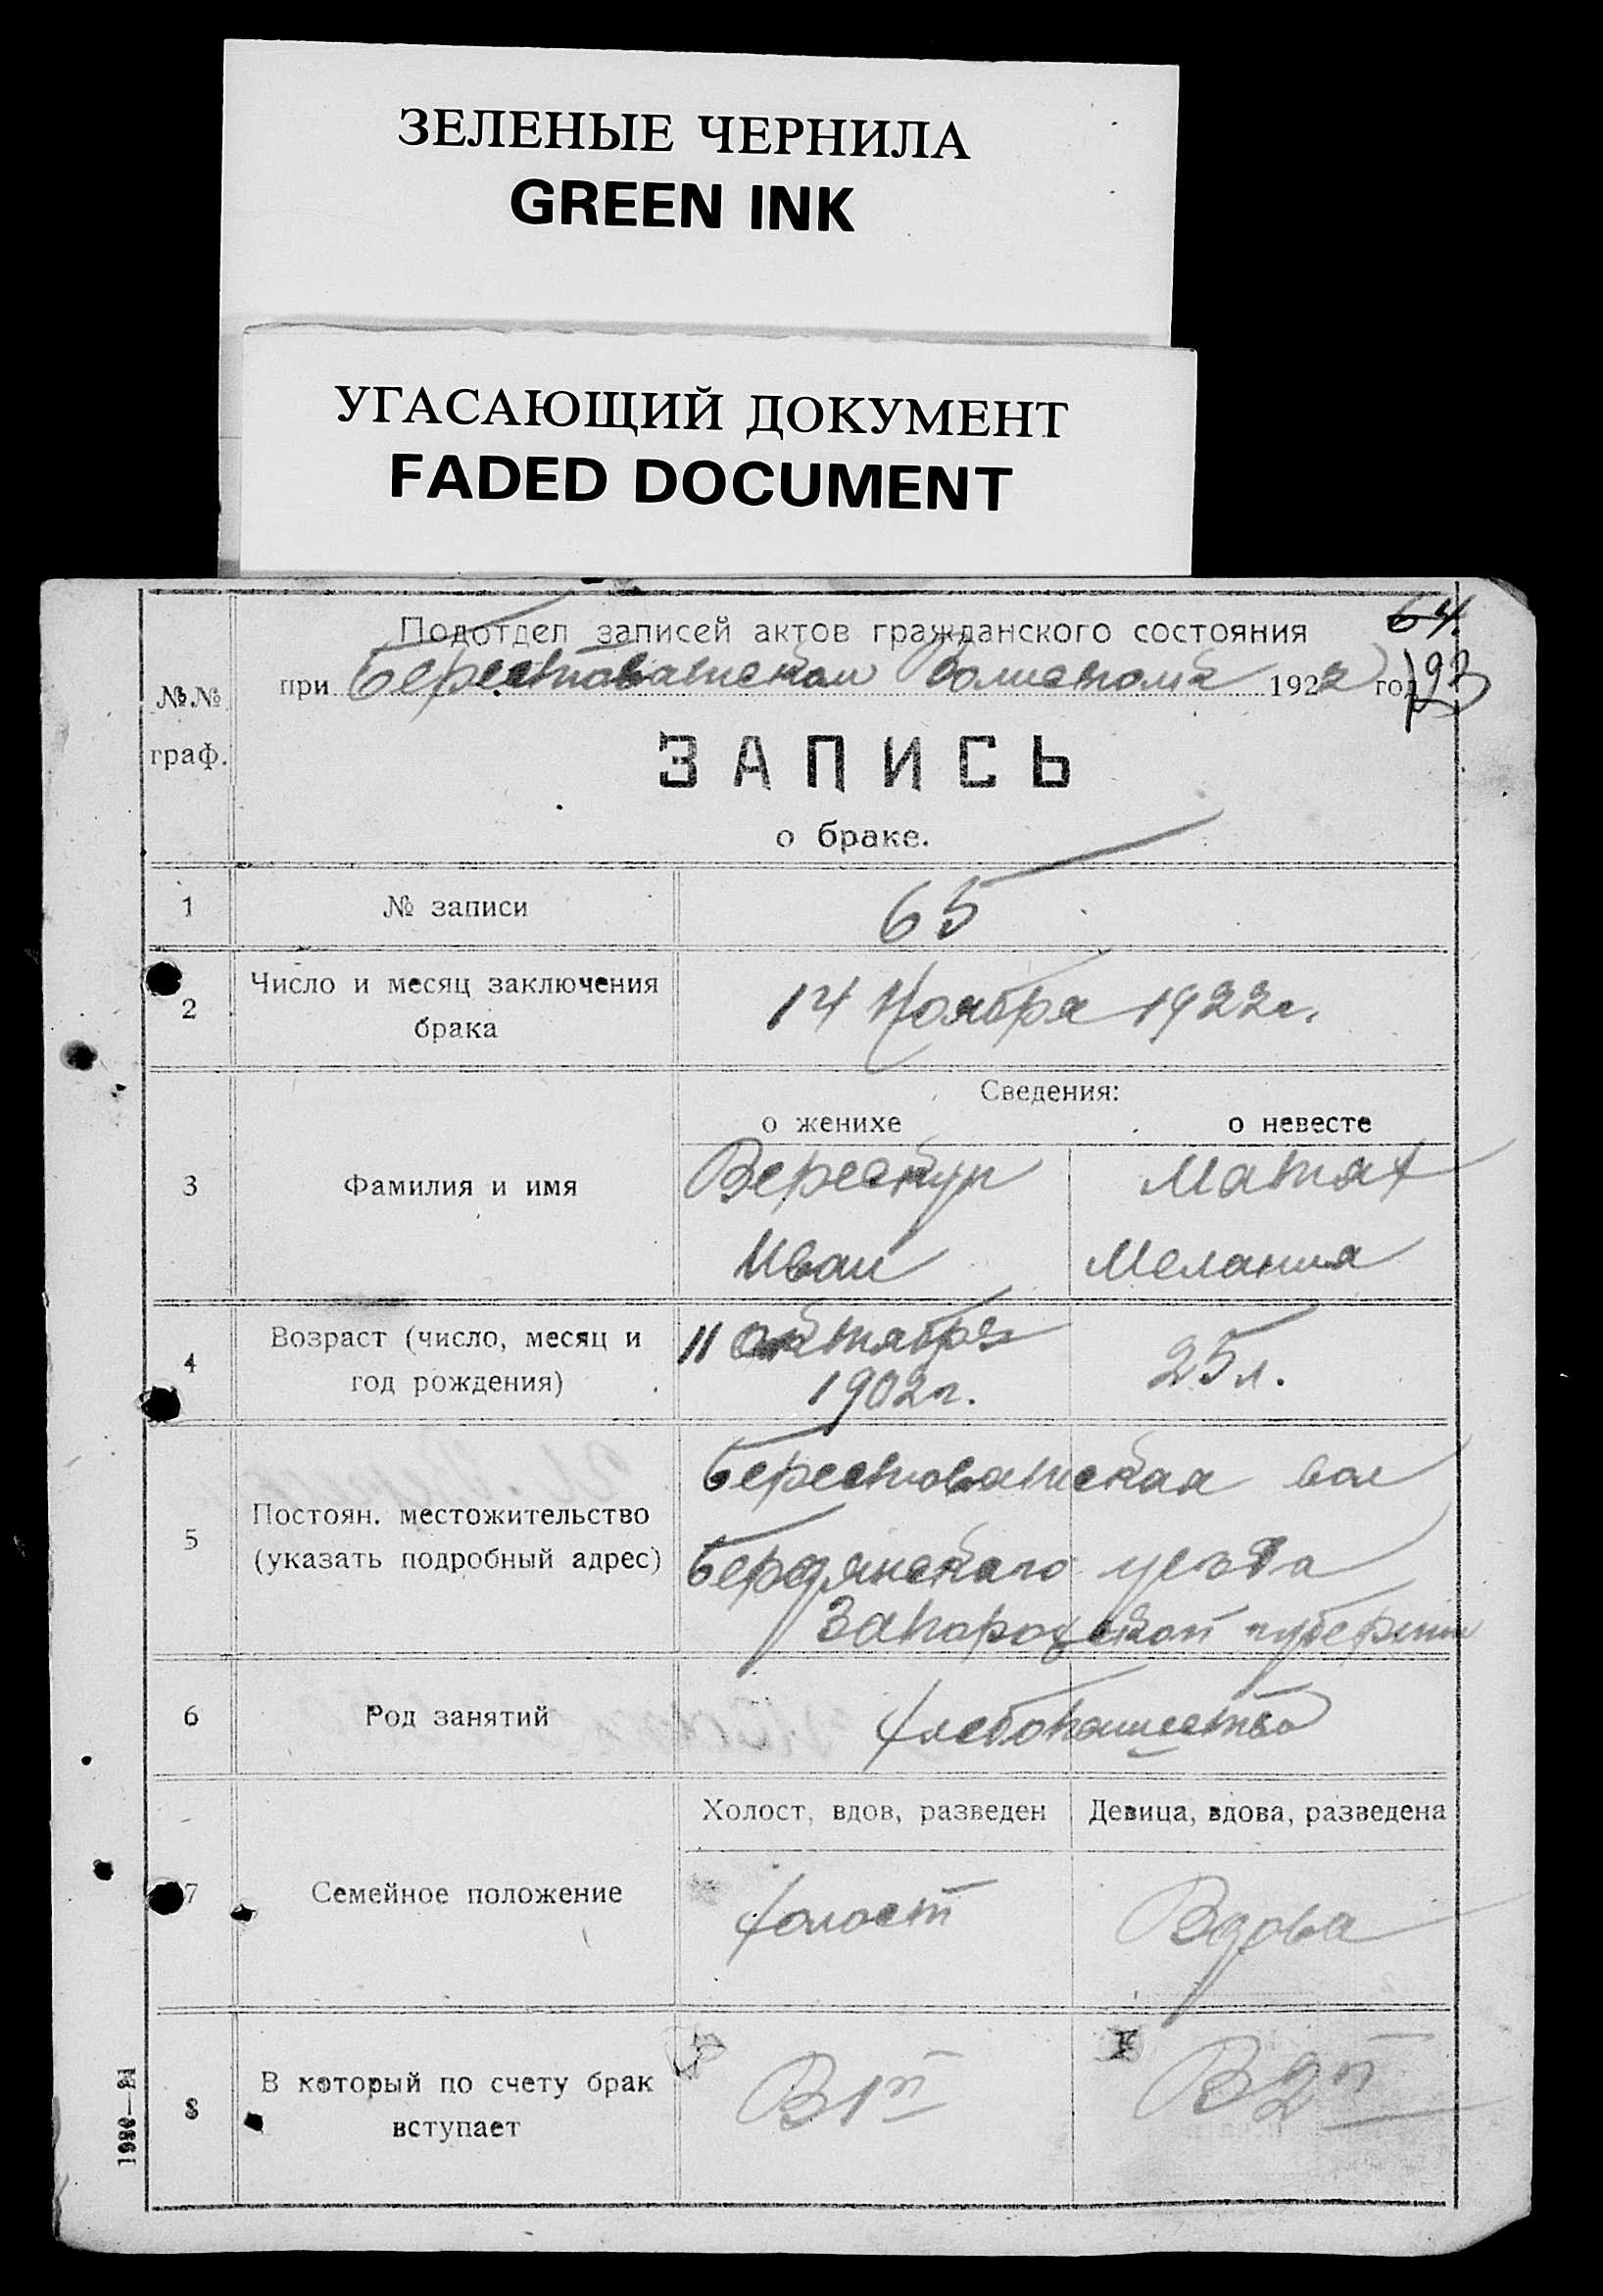 ЗЕЛЕНЫЕ ЧЕРНИЛА
GREEN INK
УГАСАЮЩИЙ ДОКУМЕНТ
FADED DOCUMENT
64.
Подотдел записей актов гражданского состояния
при Берестоватском Волисполк 1922 год
93
№№ граф.
ЗАПИСЬ
о браке.
1 № записи 65
2 Число и месяц заключения брака 14 Ноября 1922г.
Сведения:
о женихе о невесте
3 Фамилия и имя Верескун Матях
Иван Мелания
4 Возраст (число, месяц и год рождения) 11 октября 1902г. 25 л.
5 Постоян. местожительство (указать подробный адрес) Берестоватская вол
Бердянского уезда
Запорожской губернии
6 Род занятий Хлебопашество
Холост, вдов, разведен Девица, вдова, разведена
7 Семейное положение Холост Вдова
8 В который по счету брак вступает В 1й В 2й
1980—21